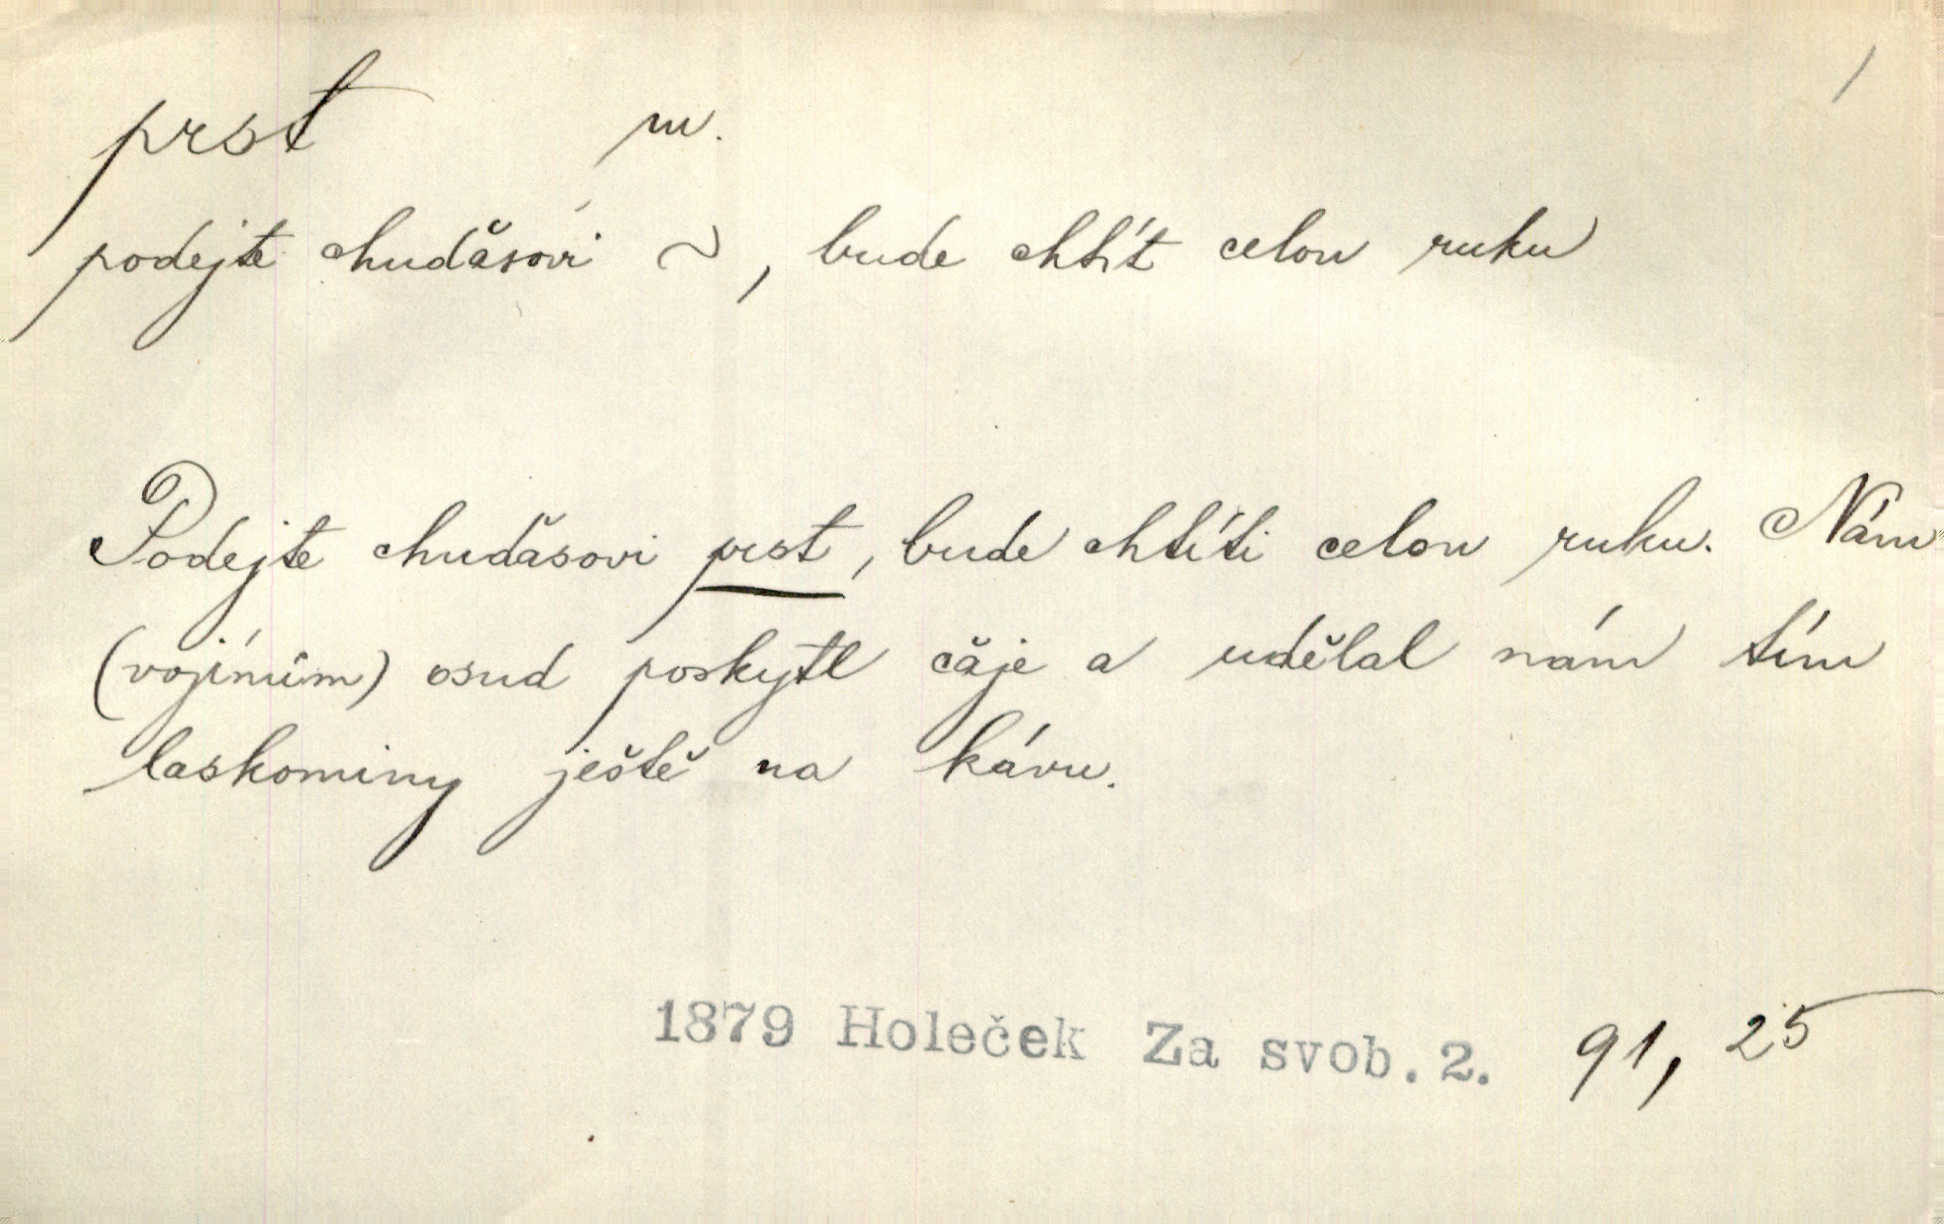 prst m. /
podejte chuďasovi ~, bude chtít celou ruku
Podejte chuďasovi prst, bude chtíti celou ruku. Nám
(vojínům) osud poskytl čaje a udělal nám tím
laskominy ještě na kávu.
1879 Holeček Za svob. 2. 91, 25